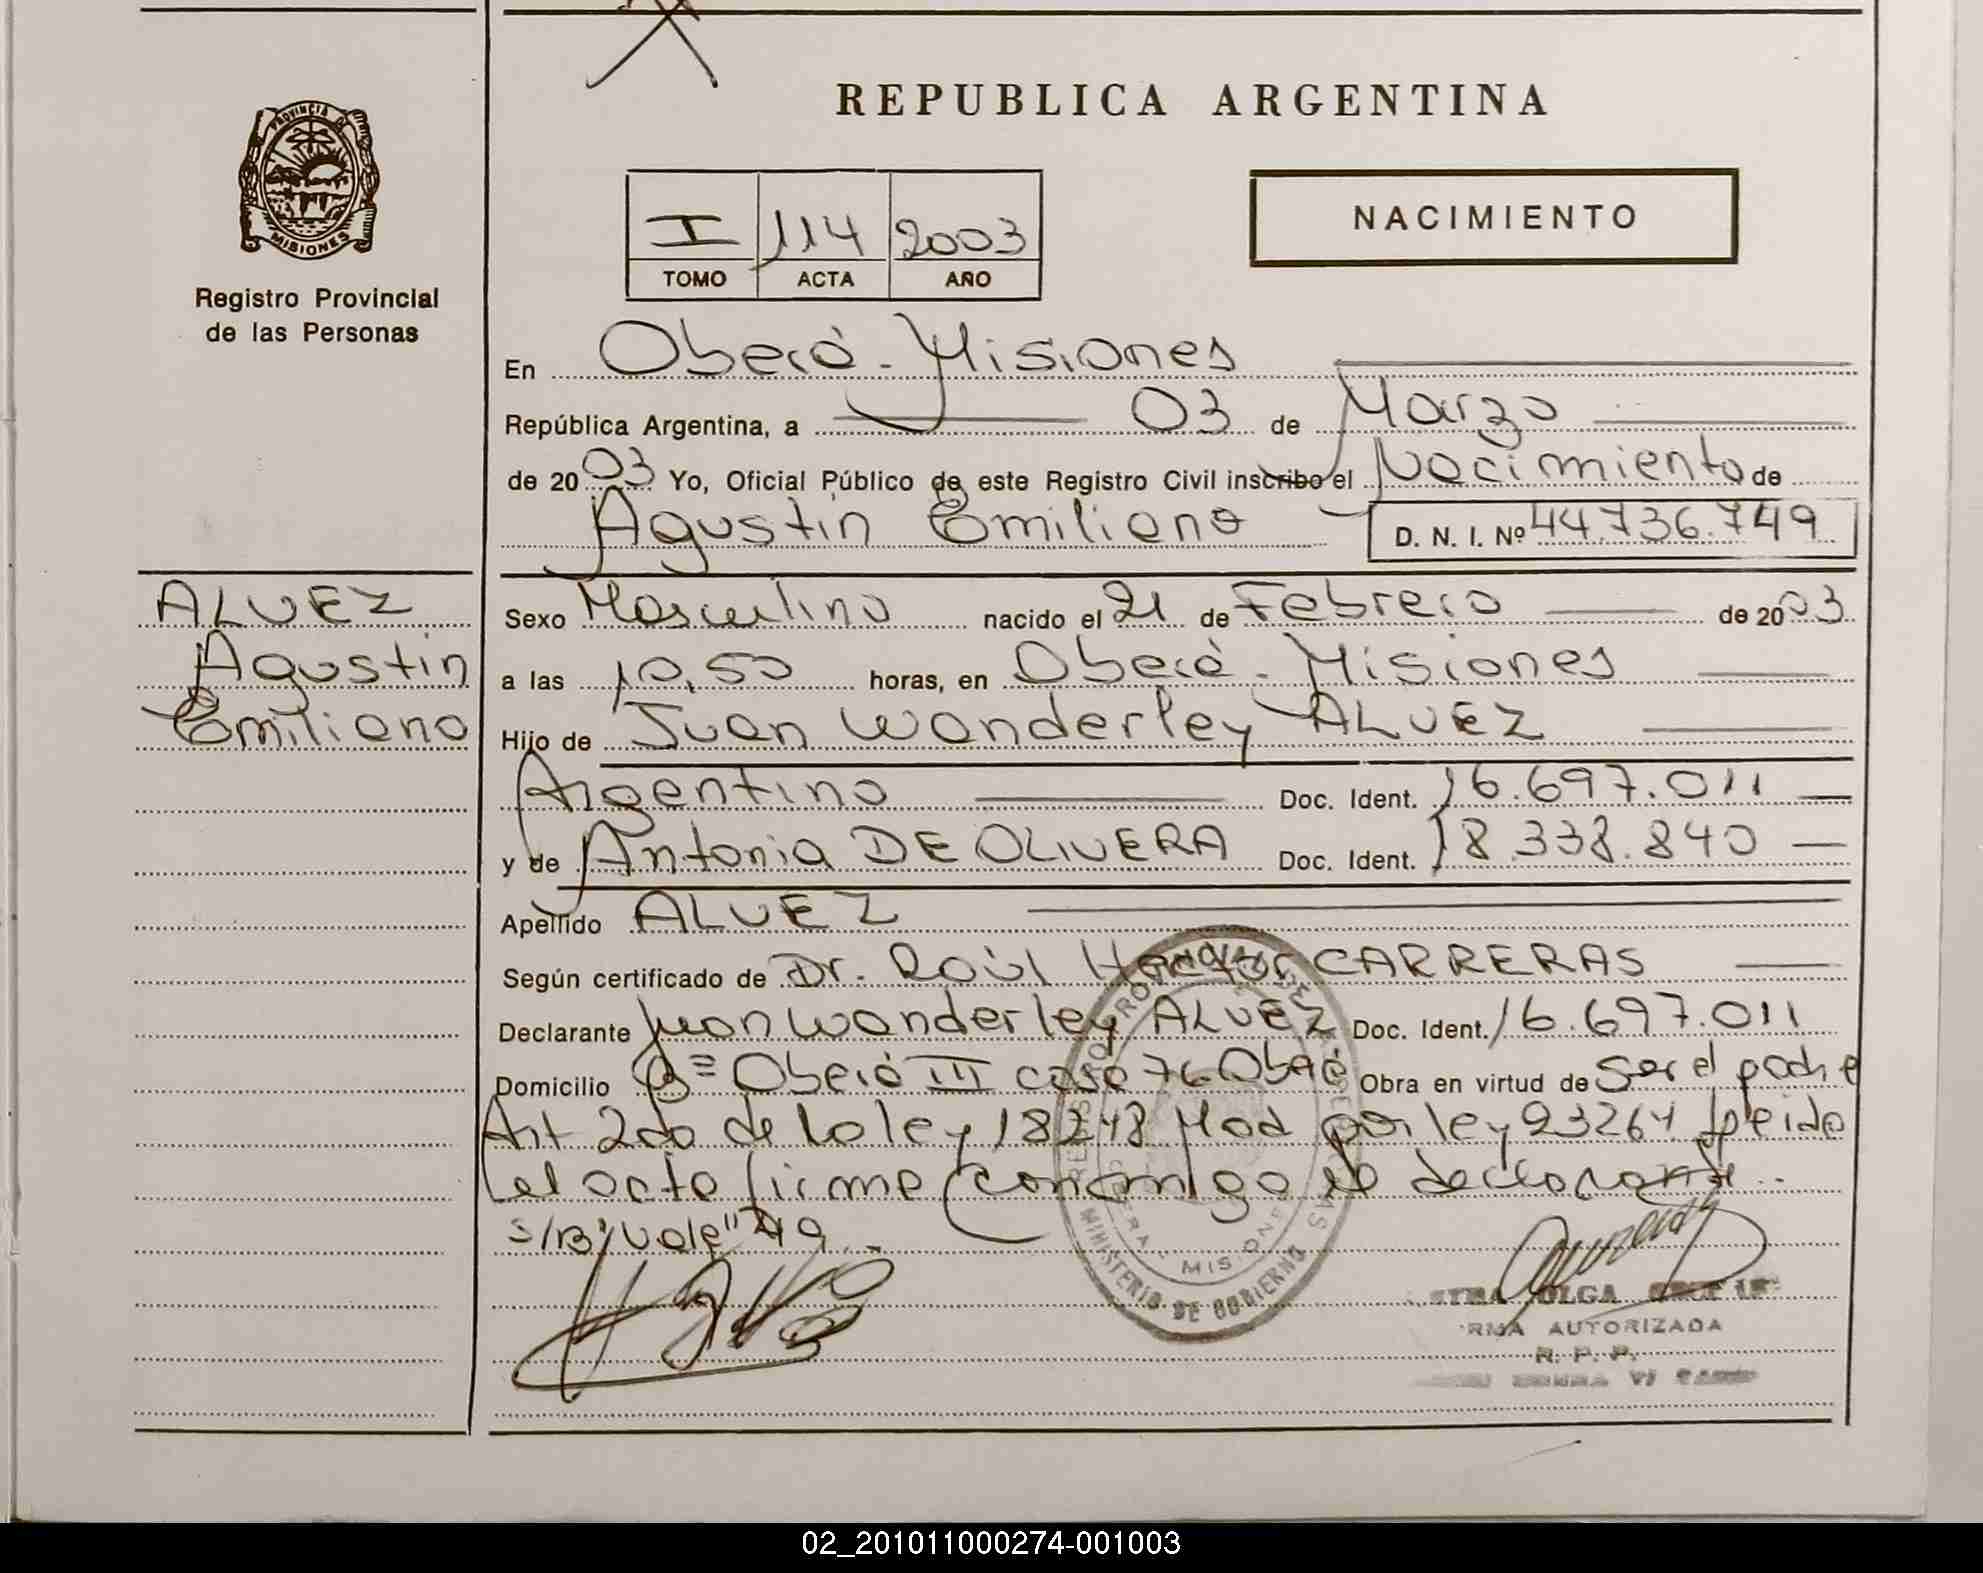 PROVINCIA D
MISIONES
Registro Provincial
de las Personas
REPUBLICA ARGENTINA
I 114 2003
TOMO ACTA AÑO
NACIMIENTO
En Oberá - Misiones
República Argentina, a 03 de Marzo
de 2003 Yo, Oficial Público de este Registro Civil inscribo el Nacimiento de
Agustin Emiliano D. N. I. Nº 44.736.749
ALVEZ
Agustin
Emiliano
Sexo Masculino nacido el 21 de Febrero de 2003
a las 10,50 horas, en Oberá - Misiones
Hijo de Juan Wanderley ALVEZ
Argentino Doc. Ident. 16.697.011
y de Antonia DE OLIVERA Doc. Ident. 18.338.840
Apellido ALVEZ
Según certificado de Dr. Raúl Hector CARRERAS
Declarante Juan Wanderley ALVEZ Doc. Ident. 16.697.011
Domicilio Bº Oberá III casa 76 Oberá Obra en virtud de Ser el padre
Art 2do de la ley 18248 Mod por ley 23264 leido
el acto firma conmigo el declarante
S/B "Vale" 49
MINISTERIO DE GOBIERNO
MISIONES
OLGA
RMA AUTORIZADA
R. P. P.
02_201011000274-001003